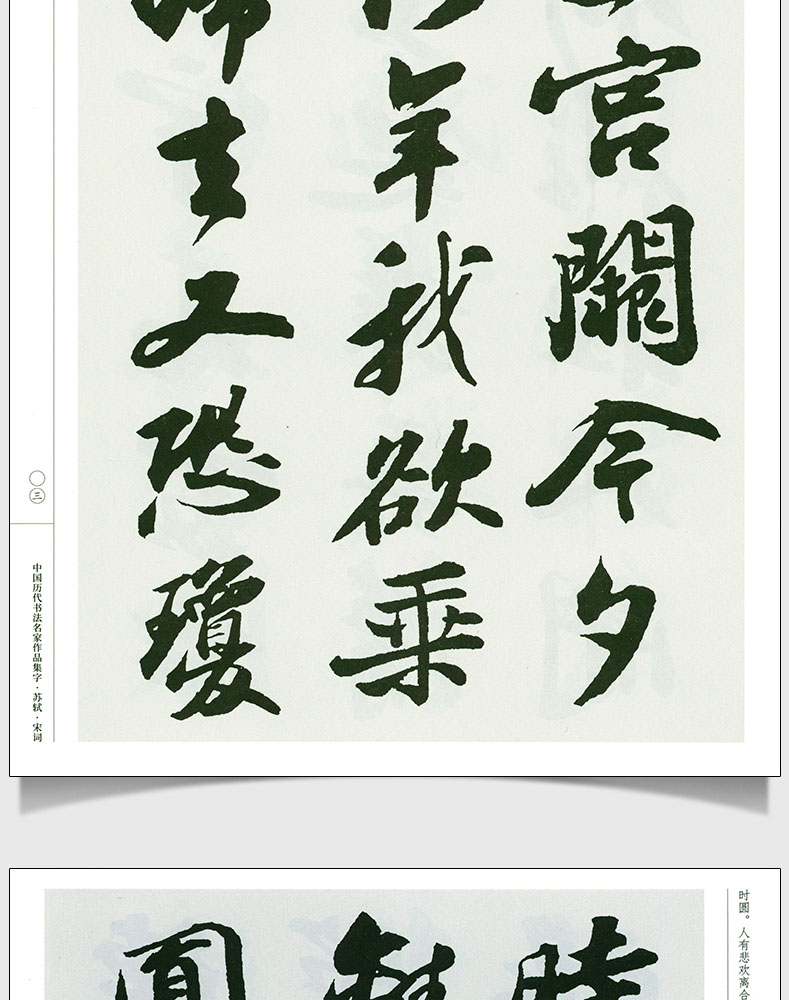 宮闕今夕
年我欲乘
歸去又恐瓊
〇三
中国历代书法名家作品集字·苏轼·宋词
时圆。人有悲欢离合
時
離
圓